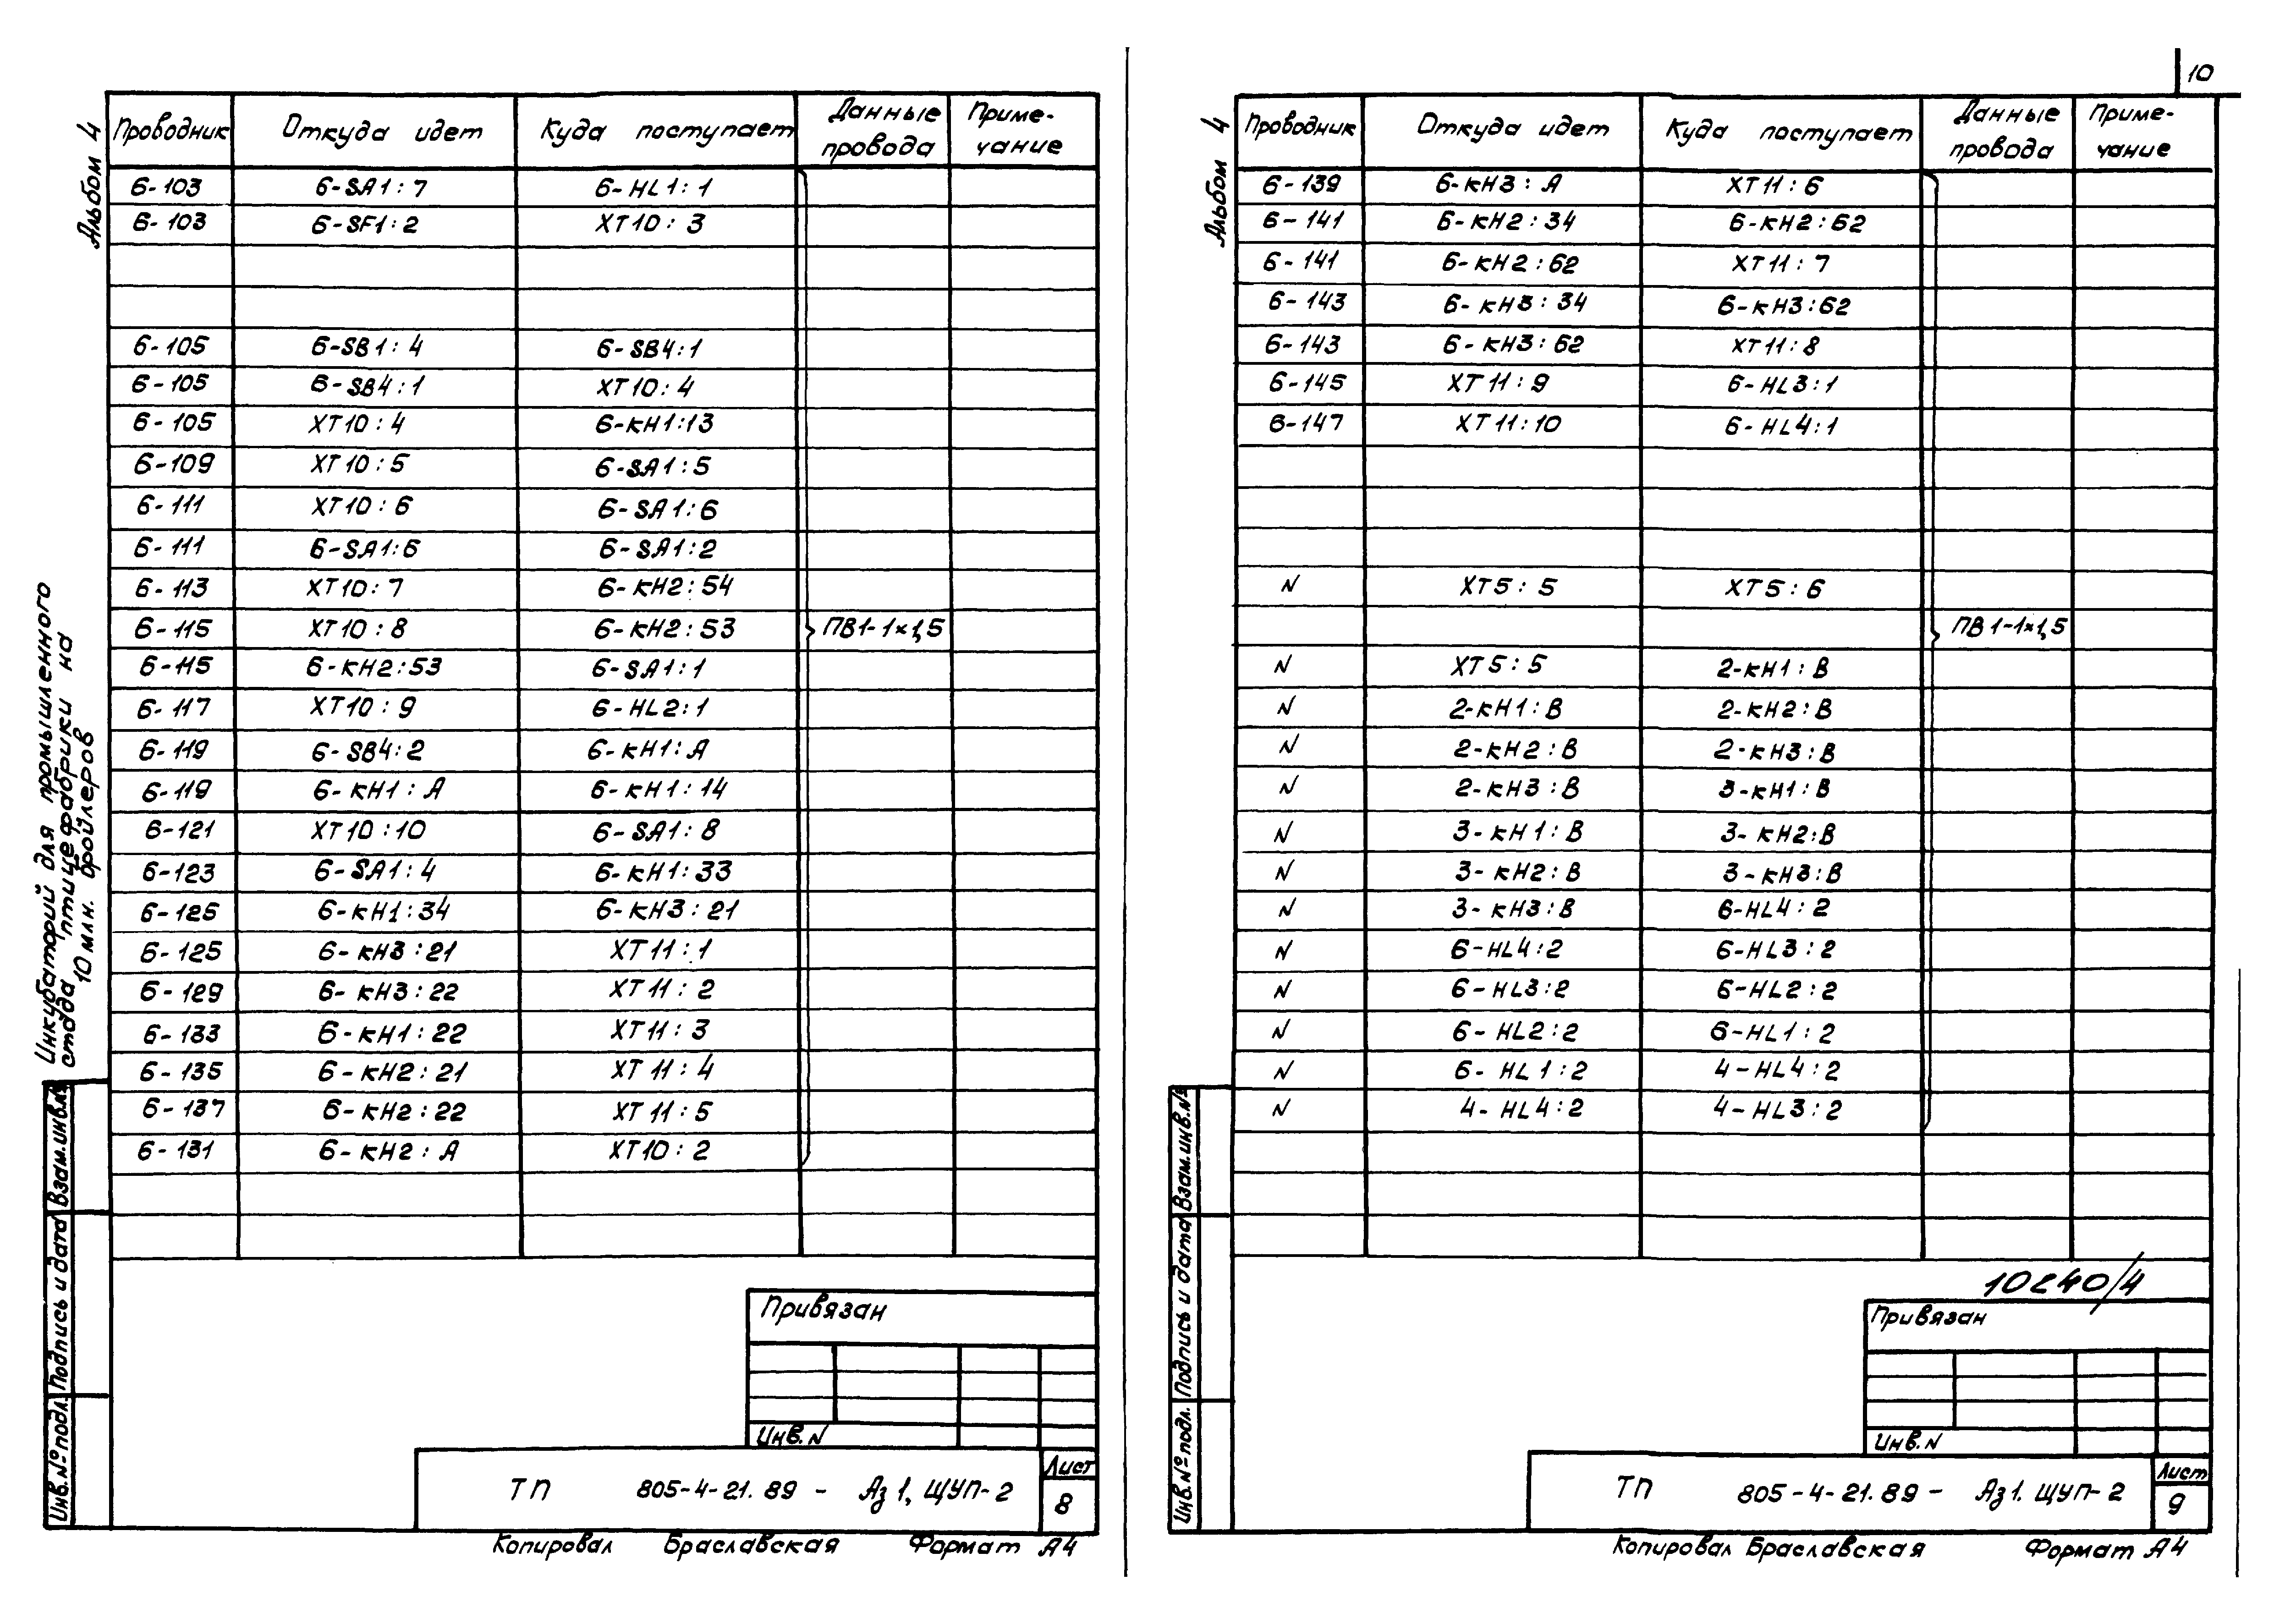 10
Альбом 4
Инкубаторий для промышленного
стада птицефабрики на
10 млн. бройлеров
Проводник Откуда идет Куда поступает Данные провода Приме-чание
6-103 6-SA1:7 6-HL1:1
6-103 6-SF1:2 XT10:3
6-105 6-SB1:4 6-SB4:1
6-105 6-SB4:1 XT10:4
6-105 XT10:4 6-КН1:13
6-109 XT10:5 6-SA1:5
6-111 XT10:6 6-SA1:6
6-111 6-SA1:6 6-SA1:2
6-113 XT10:7 6-КН2:54
6-115 XT10:8 6-КН2:53 ПВ1-1×1,5
6-115 6-КН2:53 6-SA1:1
6-117 XT10:9 6-HL2:1
6-119 6-SB4:2 6-КН1:А
6-119 6-КН1:А 6-КН1:14
6-121 XT10:10 6-SA1:8
6-123 6-SA1:4 6-КН1:33
6-125 6-КН1:34 6-КН3:21
6-125 6-КН3:21 XT11:1
6-129 6-КН3:22 XT11:2
6-133 6-КН1:22 XT11:3
6-135 6-КН2:21 XT11:4
6-137 6-КН2:22 XT11:5
6-131 6-КН2:А XT10:2
Взам.инв.№
Подпись и дата
Инв.№ подл.
Привязан
Инв.N
ТП 805-4-21.89 - Аз1, ЩУП-2
Лист
8
Копировал Браславская Формат А4
Альбом 4
Проводник Откуда идет Куда поступает Данные провода Приме-чание
6-139 6-КН3:А XT11:6
6-141 6-КН2:34 6-КН2:62
6-141 6-КН2:62 XT11:7
6-143 6-КН3:34 6-КН3:62
6-143 6-КН3:62 XT11:8
6-145 XT11:9 6-HL3:1
6-147 XT11:10 6-HL4:1
N XT5:5 XT5:6
ПВ1-1×1,5
N XT5:5 2-КН1:В
N 2-КН1:В 2-КН2:В
N 2-КН2:В 2-КН3:В
N 2-КН3:В 3-КН1:В
N 3-КН1:В 3-КН2:В
N 3-КН2:В 3-КН3:В
N 3-КН3:В 6-HL4:2
N 6-HL4:2 6-HL3:2
N 6-HL3:2 6-HL2:2
N 6-HL2:2 6-HL1:2
N 6-HL1:2 4-HL4:2
N 4-HL4:2 4-HL3:2
Взам.инв.№
Подпись и дата
Инв.№ подл.
10240/4
Привязан
Инв.N
ТП 805-4-21.89 - Аз1. ЩУП-2
Лист
9
Копировал Браславская Формат А4